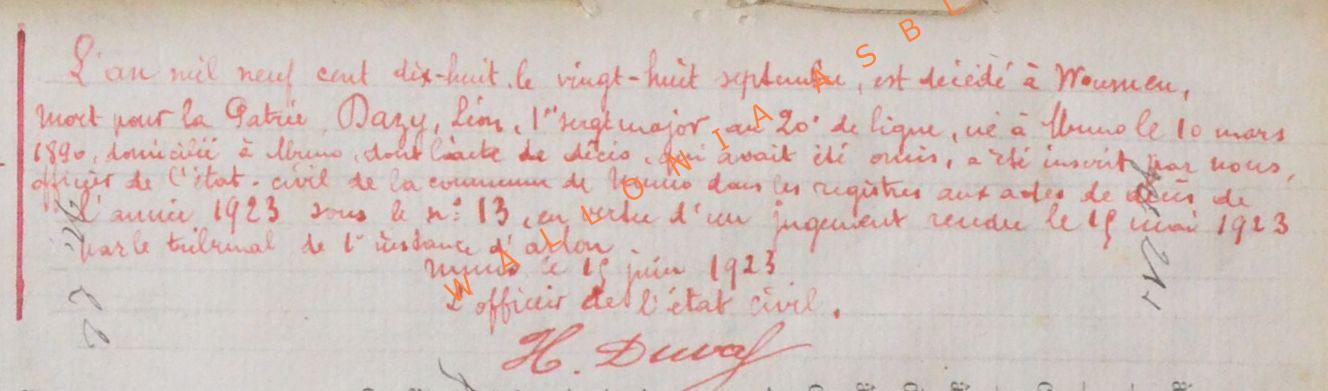 L'an mil neuf cent dix-huit, le vingt-huit septembre, est décédé à Woumen,
mort pour la Patrie, Dazy, Léon, 1er sergt major au 20e de ligne, né à Muno le 10 mars
1890, domicilié à Muno, dont l'acte de décès, qui avait été omis, a été inscrit par nous,
officier de l'état-civil de la commune de Muno dans les registres aux actes de décès de
l'année 1923 sous le n° 13, en vertu d'un jugement rendu le 15 mai 1923
par le tribunal de 1e instance d'Arlon.
Muno le 15 juin 1923
L'officier de l'état civil.
H. Duval
WALLONIA ASBL